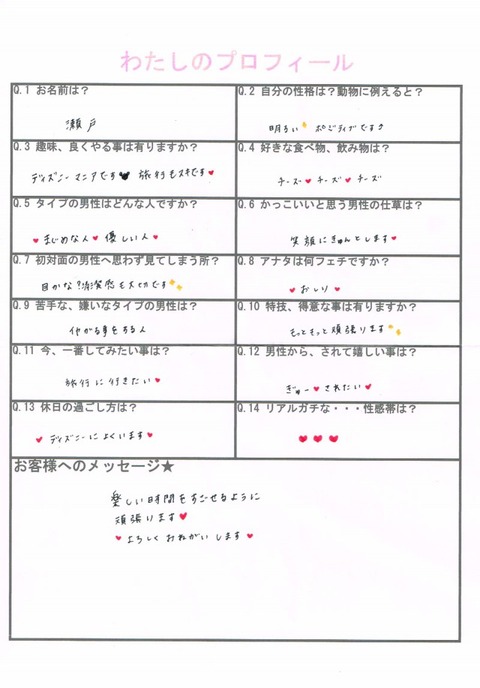 わたしのプロフィール
Q.1 お名前は?
瀬戸
Q.2 自分の性格は?動物に例えると?
明るい ポジティブです♪
Q.3 趣味、良くやる事は有りますか?
ディズニーマニアです 旅行もスキです♥
Q.4 好きな食べ物、飲み物は?
チーズ♥チーズ♥チーズ
Q.5 タイプの男性はどんな人ですか?
♥まじめな人♥優しい人♥
Q.6 かっこいいと思う男性の仕草は?
笑顔にきゅんとします♥
Q.7 初対面の男性へ思わず見てしまう所?
目かな?清潔感も大切です
Q.8 アナタは何フェチですか?
♥おしり♥
Q.9 苦手な、嫌いなタイプの男性は?
する人
Q.10 特技、得意な事は有りますか?
もっともっと頑張ります
Q.11 今、一番してみたい事は?
旅行に行きたい♥
Q.12 男性から、されて嬉しい事は?
ぎゅー♥されたい♥
Q.13 休日の過ごし方は?
♥ディズニーによくいます♥
Q.14 リアルガチな・・・性感帯は?
♥♥♥
お客様へのメッセージ★
楽しい時間をすごせるように
頑張ります♥
♥よろしくおねがいします♥